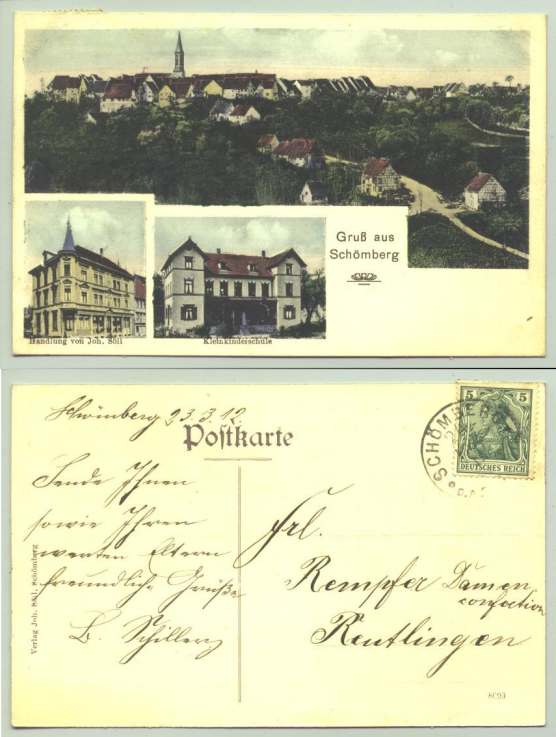 Gruß aus
Schömberg
Handlung von Joh. Söll
Kleinkinderschule
Schömberg 23.3.12.
Postkarte
SCHÖMBERG
5 5
DEUTSCHES REICH
Sende Ihnen
sowie Ihren
werten Eltern
freundliche Grüße
B. Schillery
Frl.
Rempfer Damen
confection
Reutlingen
Verlag Joh. Söll, Schömberg